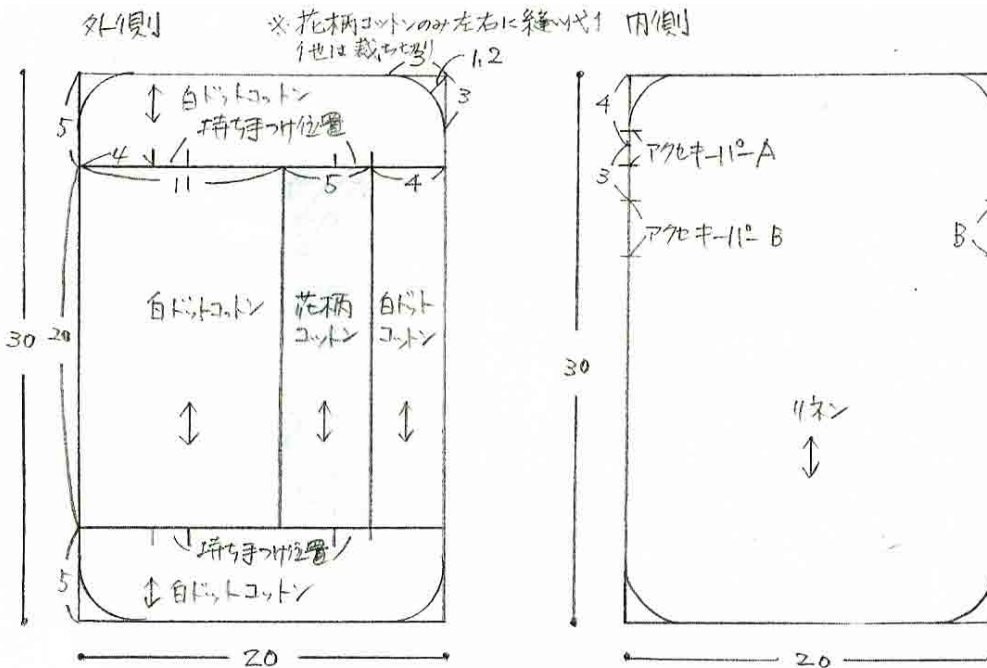 外側
※花柄コットンのみ左右に縫い代1
他は裁ち切り
内側
3
1.2
3
5
白ドットコットン
持ち手つけ位置
4
11
5
4
白ドットコットン
花柄
コットン
白ドット
コットン
30
20
持ち手つけ位置
5
白ドットコットン
20
4
アクセキーパーA
3
アクセキーパーB
B
30
リネン
20